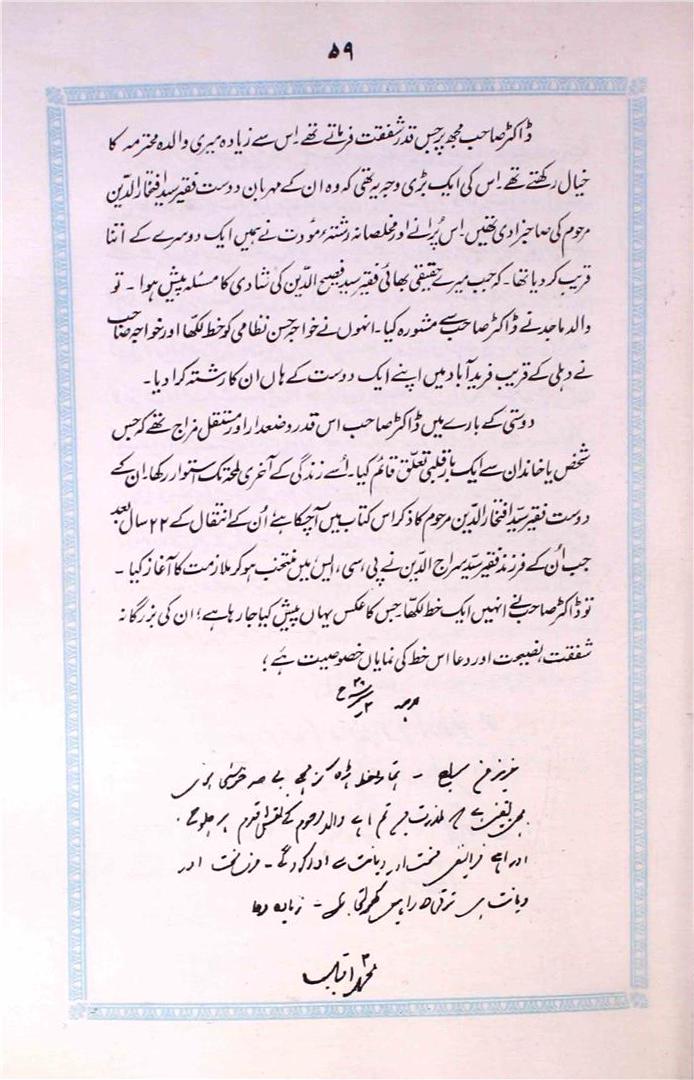 ۵۹
ڈاکٹر صاحب مجھ پر جس قدر شفقت فرماتے تھے۔ اس سے زیادہ میری والدہ محترمہ کا
خیال رکھتے تھے۔ اس کی ایک بڑی وجہ یہ تھی کہ وہ ان کے مہربان دوست فقیر سید افتخار الدین
مرحوم کی صاحبزادی تھیں۔ اس پرانے اور مخلصانہ رشتۂ مؤدت نے ہمیں ایک دوسرے کے اتنا
قریب کر دیا تھا۔ کہ جب میرے حقیقی بھائی فقیر سید فصیح الدین کی شادی کا مسئلہ پیش ہوا۔ تو
والد ماجد نے ڈاکٹر صاحب سے مشورہ کیا۔ انہوں نے خواجہ حسن نظامی کو خط لکھا اور خواجہ صاحب
نے دہلی کے قریب فرید آباد میں اپنے ایک دوست کے ہاں ان کا رشتہ کرا دیا۔
دوستی کے بارے میں ڈاکٹر صاحب اس قدر وضعدار اور مستقل مزاج تھے کہ جس
شخص یا خاندان سے ایک بار قلبی تعلق قائم کیا۔ اُسے زندگی کے آخری لمحہ تک استوار رکھا۔ ان کے
دوست فقیر سیّد افتخار الدین مرحوم کا ذکر اس کتاب میں آچکا ہے۔ اُن کے انتقال کے ۲۲ سال بعد
جب اُن کے فرزند فقیر سید سراج الدین نے پی، سی، ایس میں منتخب ہو کر ملازمت کا آغاز کیا۔
تو ڈاکٹر صاحب نے انہیں ایک خط لکھا۔ جس کا عکس یہاں پیش کیا جا رہا ہے؛ ان کی بزرگانہ
شفقت، نصیحت اور دعا اس خط کی نمایاں خصوصیت ہے؛
عزیز من سراج - تمہارا خط پڑھ کر مجھے بے حد خوشی ہوئی
مجھے یقین ہے کہ ملازمت میں تم اپنے والد مرحوم کے نقش قدم پر چلو گے۔
اور اپنے فرائض محنت اور دیانت سے ادا کرو گے۔ محنت اور
دیانت ہی ترقی کی راہیں کھولتی ہے - زیادہ دعا
محمد اقبال